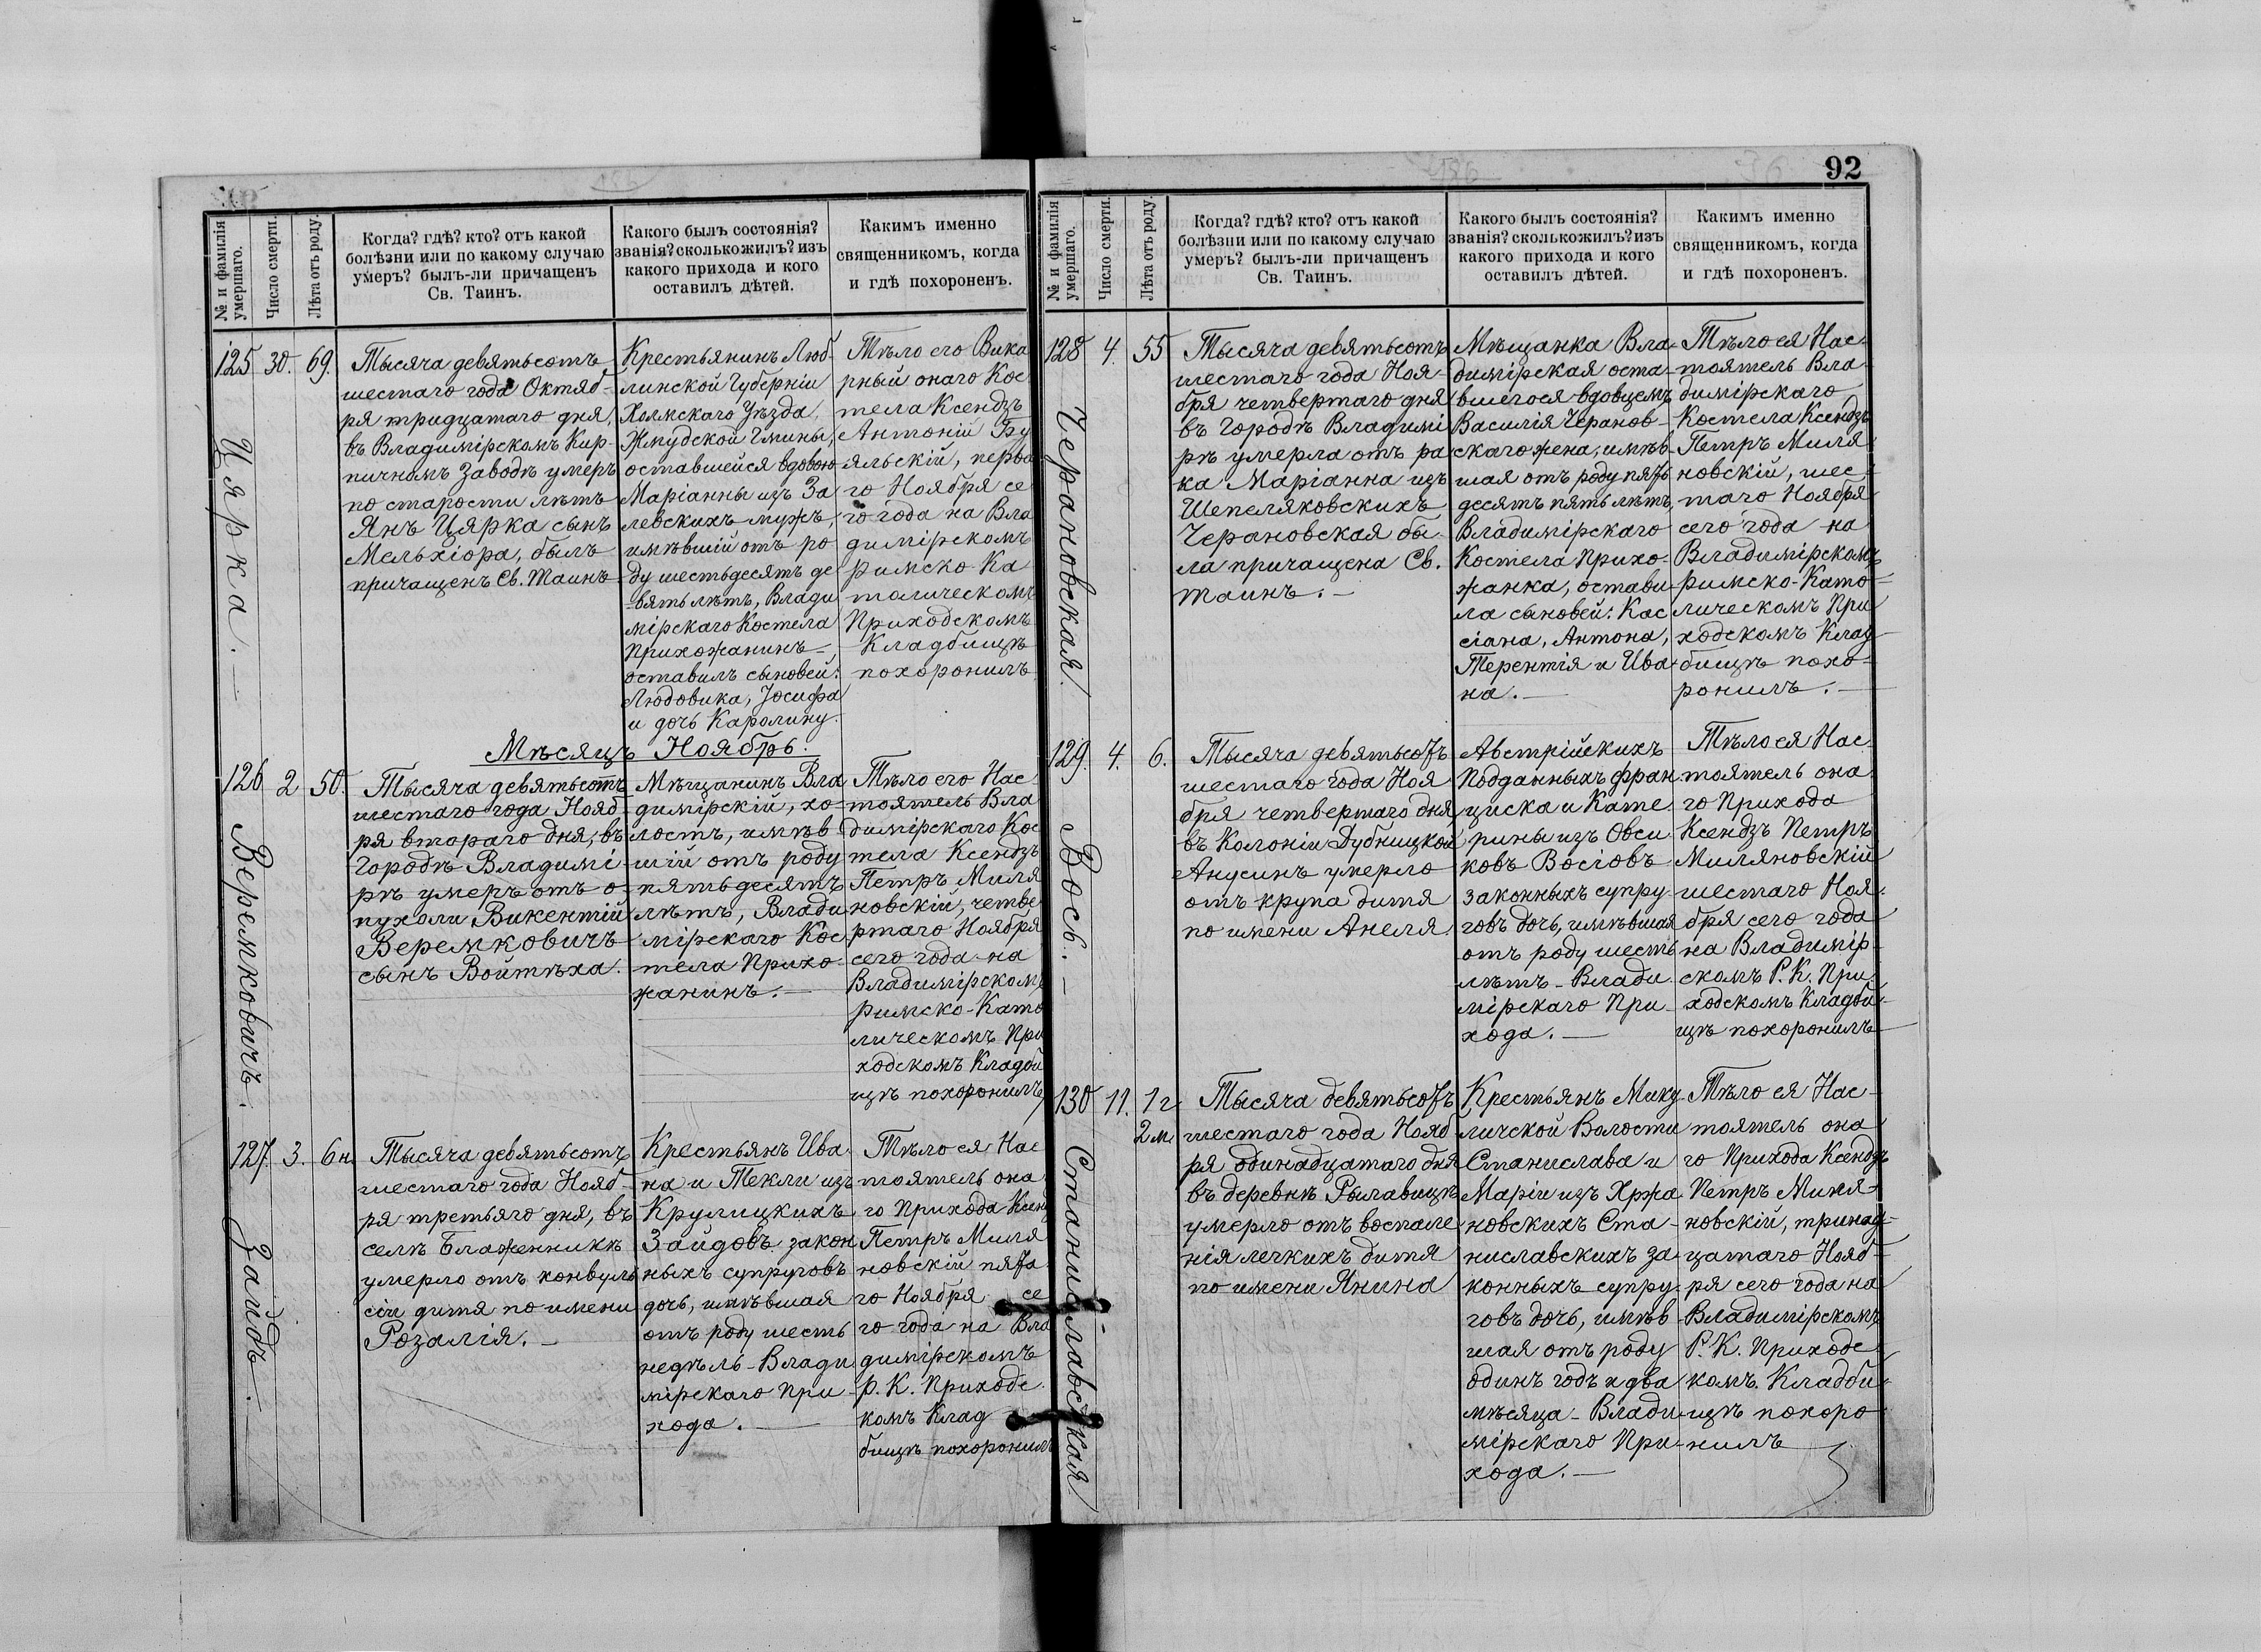 92
№ и фамилія умершаго.
Число смерти.
Лѣта отъ роду.
Когда? гдѣ? кто? отъ какой
болѣзни или по какому случаю
умеръ? былъ-ли причащенъ
Св. Таинъ.
Какого былъ состоянія?
званія? сколько жилъ? изъ
какого прихода и кого
оставилъ дѣтей.
Какимъ именно
священникомъ, когда
и гдѣ похороненъ.
125 30. 69.
Цярка.—
Тысяча девятьсотъ
шестаго года Октяб-
ря тридцатаго дня,
въ Владимірскомъ Кир-
пичномъ заводѣ умеръ
по старости лѣтъ
Янъ Цярка сынъ
Мельхіора, былъ
причащенъ Св. Таинъ
Крестьянинъ Люб-
линской Губерніи
Холмскаго Уѣзда,
Жмудской Гмины,
оставшейся вдовою
Маріанны изъ За
левскихъ мужъ,
имѣвшій отъ ро
ду шестьдесятъ де
-вять лѣтъ, Влади
мірскаго Костела
Прихожанинъ—,
оставилъ сыновей:
Людовика, Іосифа
и дочь Каролину.
Тѣло его Вика
рный онаго Кос
тела Ксендзъ
Антоній Бу
яльскій, перва
го Ноября се
го года на Вла
димірскомъ
римско-Ка
толическомъ
Приходскомъ
Кладбищѣ
похоронилъ
Мѣсяцъ Ноябрь.
126 2 50.
Веремковичъ.
Тысяча девятьсотъ
шестаго года Нояб-
ря втораго дня, въ
Городѣ Владимі
рѣ умеръ отъ о-
пухоли Викентій
Веремковичъ
сынъ Войтѣха.
Мѣщанинъ Вла
димірскій, хо-
лостъ, имѣв
шій отъ роду
пятьдесятъ
лѣтъ, Влади
мірскаго Кос
тела Прихо-
жанинъ.—
Тѣло его Нас
тоятель Вла
димірскаго Кос
тела Ксендзъ
Петръ Миля
новскій, четве
ртаго Ноября
сего года на
Владимірскомъ
римско-Като
лическомъ При
ходскомъ Кладби
щѣ похоронилъ
127. 3. 6 н.
Зайдъ.—
Тысяча девятьсотъ
шестаго года Нояб-
ря третьяго дня, въ
селѣ Блаженникѣ
умерло отъ конвуль
сіи дитя по имени
Розалія.—
Крестьянъ Ива
на и Текли изъ
Крулицкихъ
Зайдовъ закон
ныхъ супруговъ
дочь, имѣвшая
отъ роду шесть
недѣль-Влади
мірскаго При
хода.—
Тѣло ея Нас
тоятель она
го Прихода Ксенд
Петръ Миля
новскій пята
го Ноября се
го года на Вла
димірскомъ
Р. К. Приходс
комъ Клад
бищѣ похоронилъ
№ и фамилія умершаго.
Число смерти.
Лѣта отъ роду.
Когда? гдѣ? кто? отъ какой
болѣзни или по какому случаю
умеръ? былъ-ли причащенъ
Св. Таинъ.
Какого былъ состоянія?
званія? сколько жилъ? изъ
какого прихода и кого
оставилъ дѣтей.
Какимъ именно
священникомъ, когда
и гдѣ похороненъ.
128 4. 55
Черановская.
Тысяча девятьсотъ
шестаго года Ноя-
бря четвертаго дня
въ Городѣ Владимі
рѣ умерла отъ ра
ка Маріанна изъ
Шепеляковскихъ
Черановская бы
ла причащена Св.
Таинъ.—
Мѣщанка Вла
димірская оста-
вшегося вдовцемъ
Василія Черанов-
скаго жена, имѣв
шая отъ роду пять
десятъ пять лѣтъ,
Владимірскаго
Костела Прихо-
жанка, остави
ла сыновей: Кас
сіана, Антона,
Терентія и Ива
на.—
Тѣло ея Нас
тоятель Вла
димірскаго
Костела Ксендзъ
Петръ Миля
новскій, шес
таго Ноября
сего года на
Владимірскомъ
римско-Като-
лическомъ При
ходскомъ Клад
бищѣ похо-
ронилъ.—
129. 4. 6.
Вось.—
Тысяча девятьсотъ
шестаго года Ноя
бря четвертаго дня,
въ Колоніи Дубницкой
Анусинъ умерло
отъ крупа дитя
по имени Анеля
Австрійскихъ
Подданныхъ Фран
циска и Кате
рины изъ Овси
ковъ Восіовъ
законныхъ супру-
говъ дочь, имѣвшая
отъ роду шесть
лѣтъ-Влади
мірскаго При
хода.—
Тѣло ея Нас
тоятель она
го Прихода
Ксендзъ Петръ
Миляновскій
шестаго Ноя
бря сего года
на Владимір-
скомъ Р. К. При
ходскомъ Кладби
щѣ похоронилъ
130 11. 1 г.
2 м.
Станиславская
Тысяча девятьсотъ
шестаго года Нояб
ря одинадцатаго дня
въ деревнѣ Рылавицѣ
умерло отъ воспале
нія легкихъ дитя
по имени Янина
Крестьянъ Мику
личской Волости
Станислава и
Маріи изъ Хржа
новскихъ Ста-
ниславскихъ за-
конныхъ супру-
говъ дочь, имѣв
шая отъ роду
одинъ годъ и два
мѣсяца-Влади
мірскаго При-
хода.—
Тѣло ея Нас-
тоятель она
го Прихода Ксендзъ
Петръ Миля-
новскій, тринад
цатаго Нояб-
ря сего года на
Владимірскомъ
Р. К. Приходс
комъ Кладби
щѣ похоро
нилъ